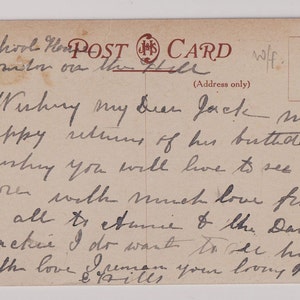 School House
POST CARD
on the Hill
(Address only)
Wishing my Dear Jack m
appy returns of his birthd
ishing you will live to see
with much love fr
all to Annie & the Da
ackie I do want to see h
th love I remain your loving